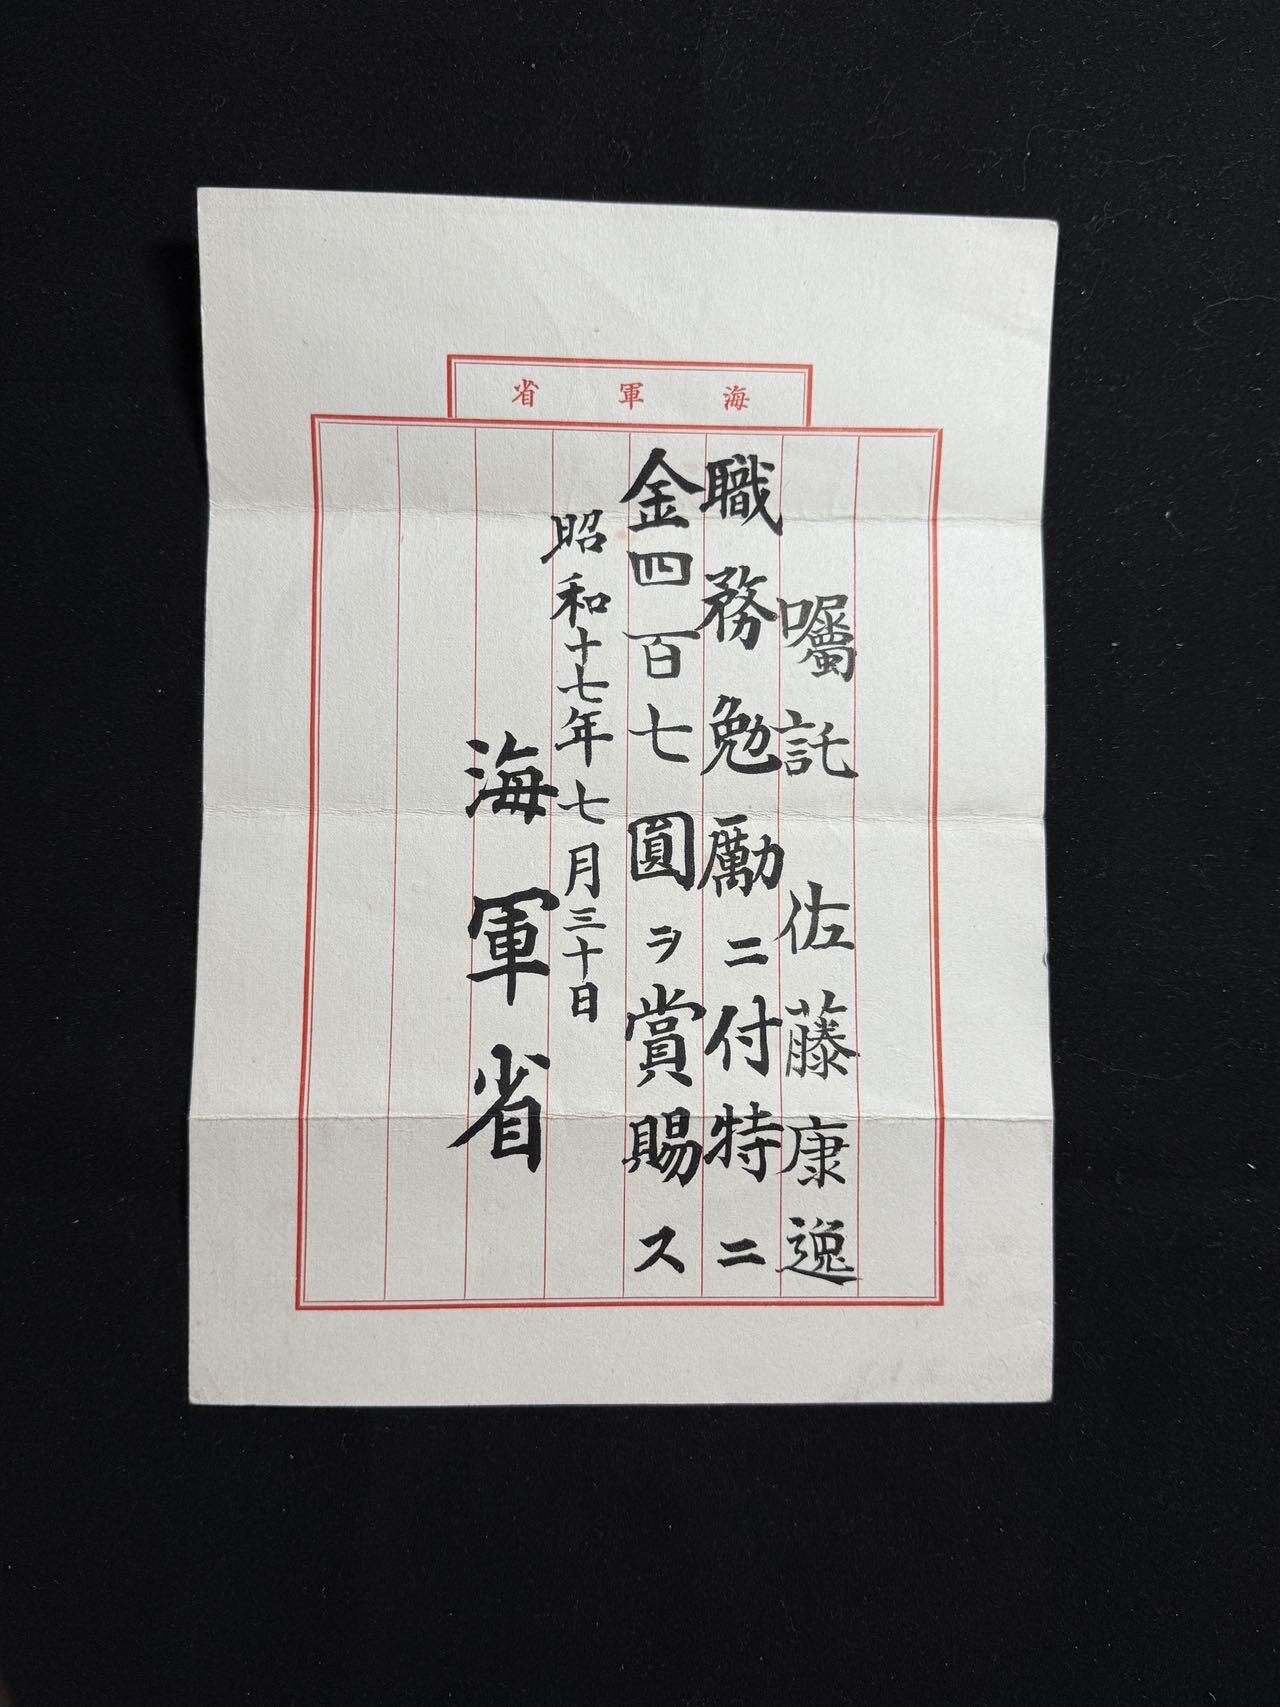 海軍省
囑託 佐藤康逸
職務勉勵ニ付特ニ
金四百七圓ヲ賞賜ス
昭和十七年七月三十日
海軍省